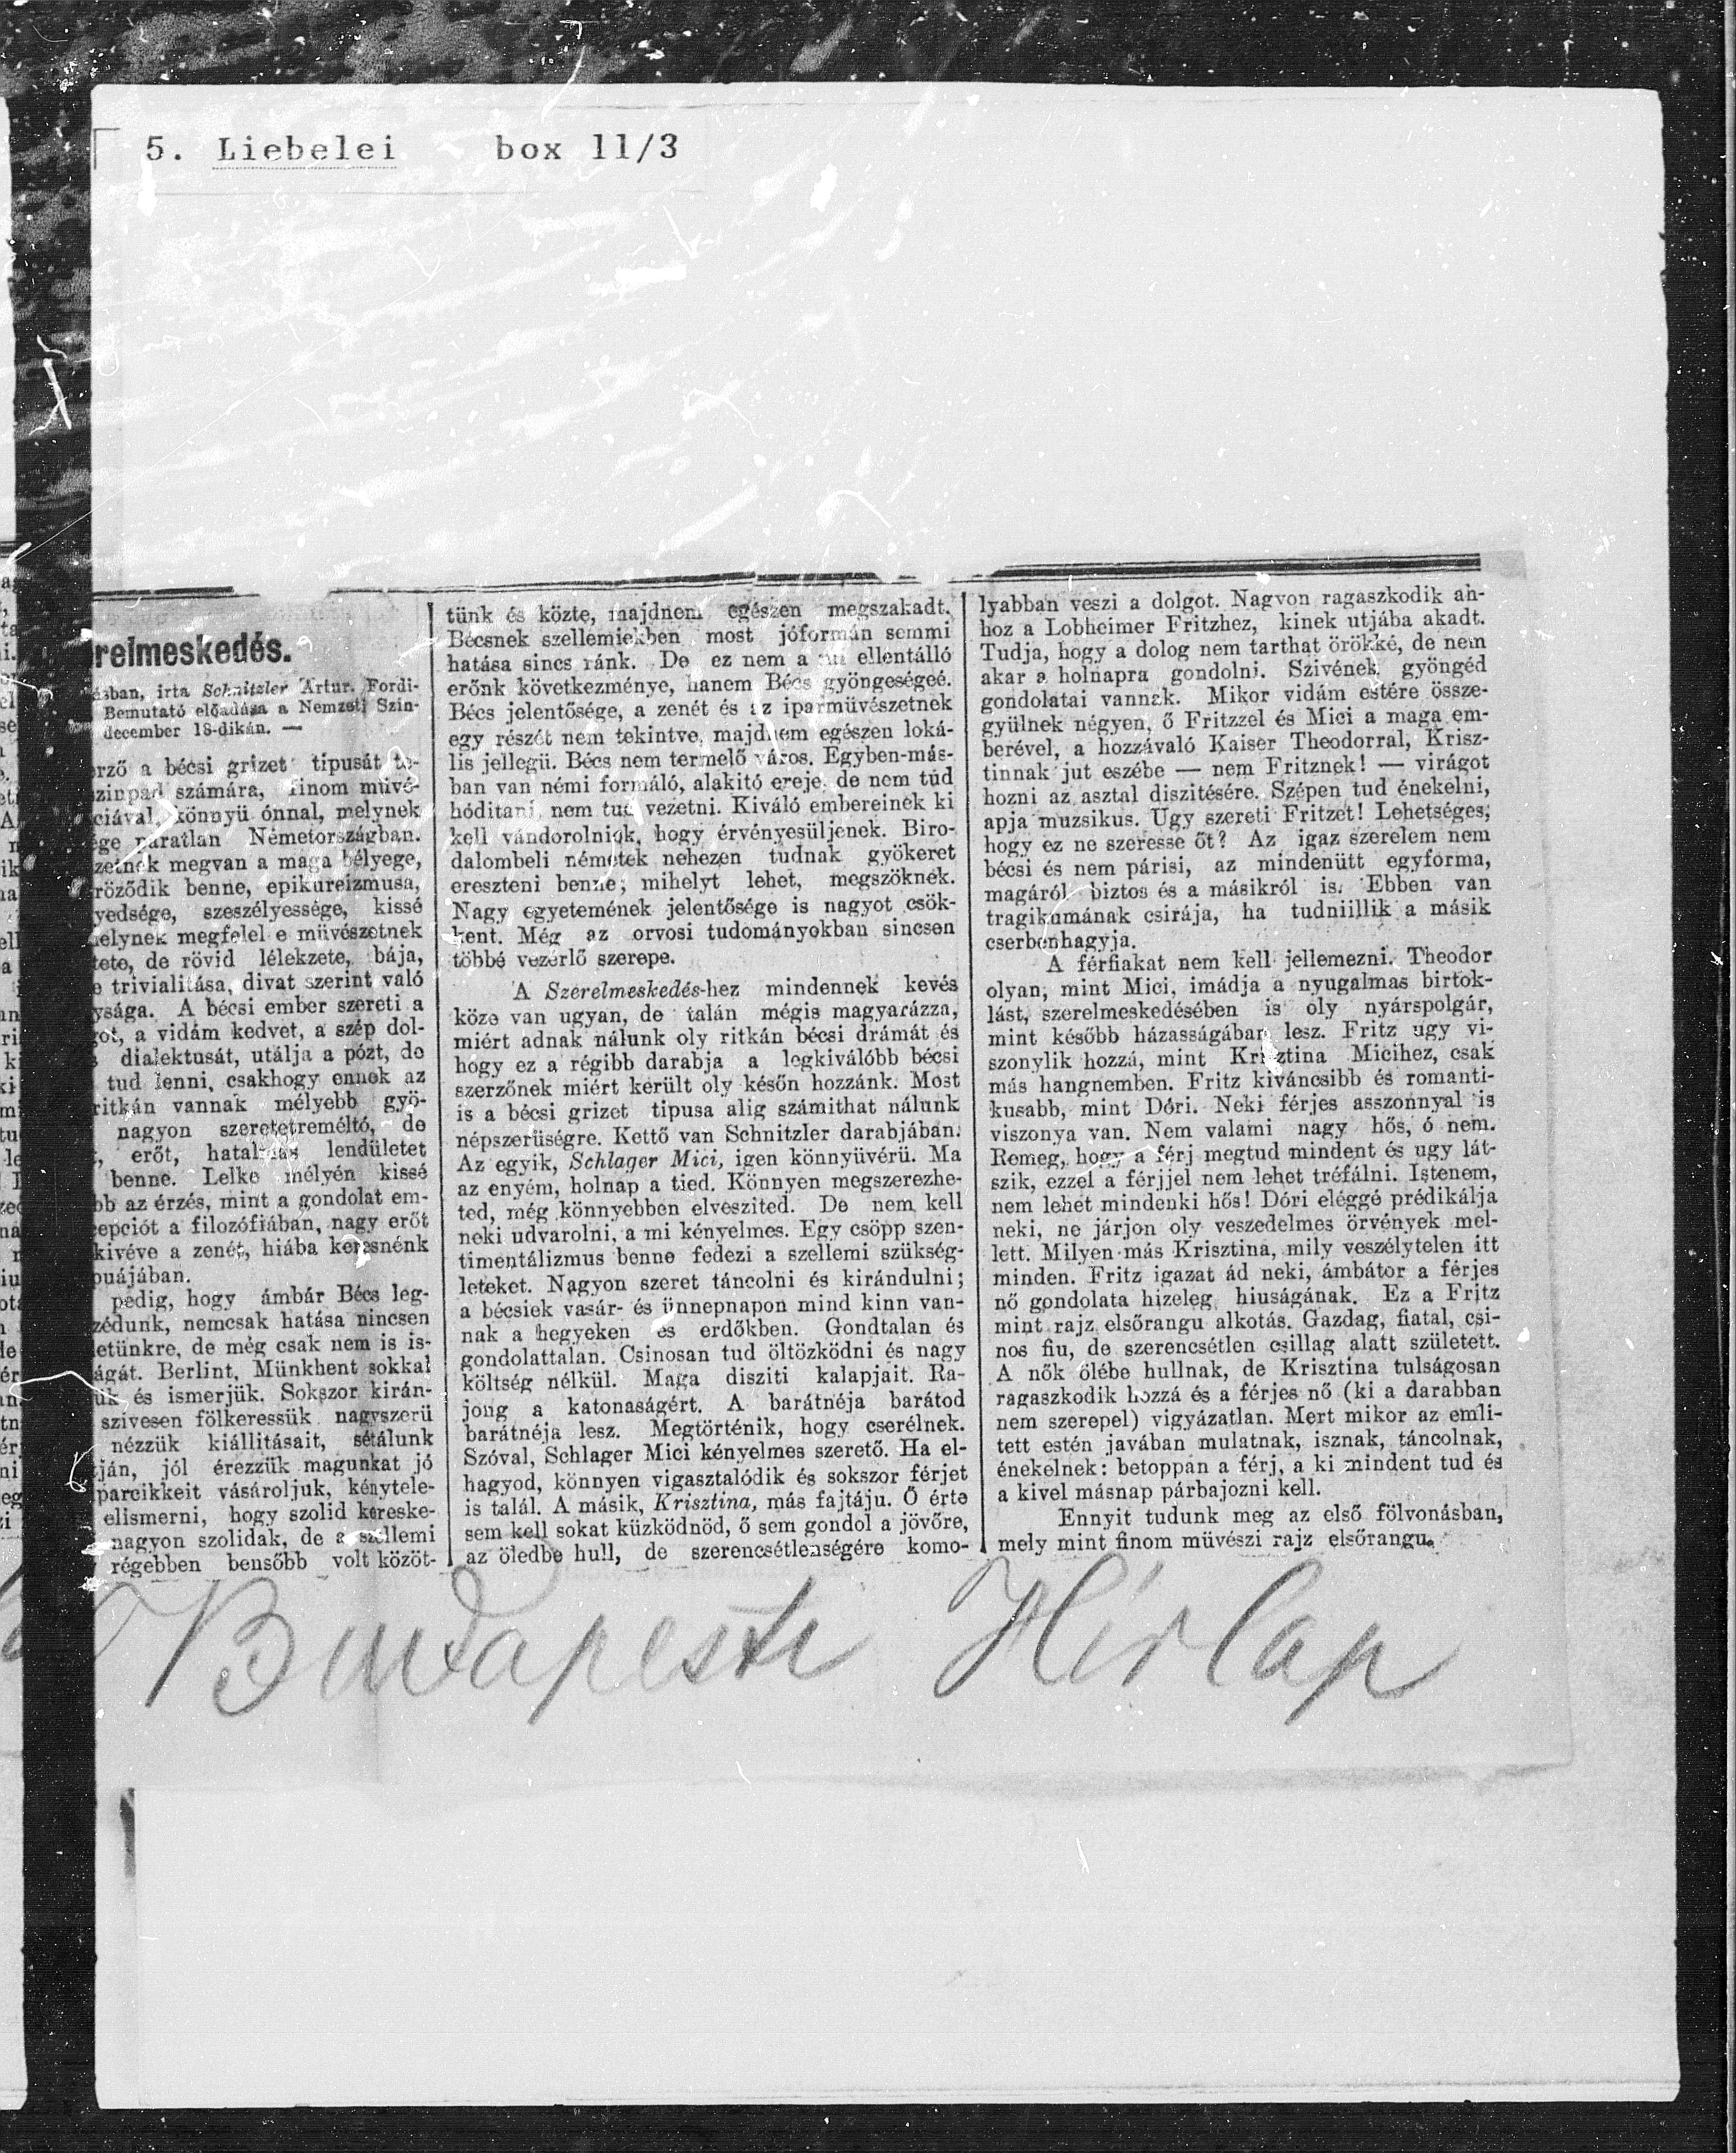 5. Liebelei box 11/3
relmeskedés.
ásban, irta Schnitzler Artur. Fordi-
Bemutató előadása a Nemzeti Szin-
december 18-dikán. —
erző a bécsi grizet tipusát te-
zinpad számára, finom müvé-
ciával, könnyü ónnal, melynek
ége páratlan Németországban.
zetnek megvan a maga bélyege,
röződik benne, epikureizmusa,
yedsége, szeszélyessége, kissé
elynek megfelel e müvészetnek
tete, de rövid lélekzete, bája,
e trivialitása, divat szerint való
ysága. A bécsi ember szereti a
got, a vidám kedvet, a szép dol-
dialektusát, utálja a pózt, de
tud lenni, csakhogy ennek az
ritkán vannak mélyebb gyö-
nagyon szeretetreméltó, de
, erőt, hatalmas lendületet
benne. Lelke mélyén kissé
bb az érzés, mint a gondolat em-
cepciót a filozófiában, nagy erőt
kivéve a zenét, hiába keresnénk
puájában.
pedig, hogy ámbár Bécs leg-
zédunk, nemcsak hatása nincsen
etünkre, de még csak nem is is-
ágát. Berlint, Münkhent sokkal
uk és ismerjük. Sokszor kirán-
szivesen fölkeressük nagyszerü
nézzük kiállitásait, sétálunk
tján, jól érezzük magunkat jó
parcikkeit vásároljuk, kénytele-
elismerni, hogy szolid kereske-
nagyon szolidak, de a szellemi
régebben bensőbb volt közöt-
tünk és közte, majdnem egészen megszakadt.
Bécsnek szellemiekben most jóformán semmi
hatása sincs ránk. De ez nem a mi ellentálló
erőnk következménye, hanem Bécs gyöngeségeé.
Bécs jelentősége, a zenét és az iparmüvészetnek
egy részét nem tekintve, majdnem egészen loká-
lis jellegü. Bécs nem termelő város. Egyben-más-
ban van némi formáló, alakitó ereje, de nem tud
hóditani, nem tud vezetni. Kiváló embereinek ki
kell vándorolniok, hogy érvényesüljenek. Biro-
dalombeli németek nehezen tudnak gyökeret
ereszteni benne; mihelyt lehet, megszöknek.
Nagy egyetemének jelentősége is nagyot csök-
kent. Még az orvosi tudományokban sincsen
többé vezérlő szerepe.
A Szerelmeskedés-hez mindennek kevés
köze van ugyan, de talán mégis magyarázza,
miért adnak nálunk oly ritkán bécsi drámát és
hogy ez a régibb darabja a legkiválóbb bécsi
szerzőnek miért került oly későn hozzánk. Most
is a bécsi grizet tipusa alig számithat nálunk
népszerüségre. Kettő van Schnitzler darabjában.
Az egyik, Schlager Mici, igen könnyüvérü. Ma
az enyém, holnap a tied. Könnyen megszerezhe-
ted, még könnyebben elveszited. De nem kell
neki udvarolni, a mi kényelmes. Egy csöpp szen-
timentálizmus benne fedezi a szellemi szükség-
leteket. Nagyon szeret táncolni és kirándulni;
a bécsiek vasár- és ünnepnapon mind kinn van-
nak a hegyeken és erdőkben. Gondtalan és
gondolattalan. Csinosan tud öltözködni és nagy
költség nélkül. Maga disziti kalapjait. Ra-
jong a katonaságért. A barátnéja barátod
barátnéja lesz. Megtörténik, hogy cserélnek.
Szóval, Schlager Mici kényelmes szerető. Ha el-
hagyod, könnyen vigasztalódik és sokszor férjet
is talál. A másik, Krisztina, más fajtáju. Ő érte
sem kell sokat küzködnöd, ő sem gondol a jövőre,
az öledbe hull, de szerencsétlenségére komo-
lyabban veszi a dolgot. Nagyon ragaszkodik ah-
hoz a Lobheimer Fritzhez, kinek utjába akadt.
Tudja, hogy a dolog nem tarthat örökké, de nem
akar a holnapra gondolni. Szivének gyöngéd
gondolatai vannak. Mikor vidám estére össze-
gyülnek négyen, ő Fritzzel és Mici a maga em-
berével, a hozzávaló Kaiser Theodorral, Krisz-
tinnak jut eszébe — nem Fritznek! — virágot
hozni az asztal diszitésére. Szépen tud énekelni,
apja muzsikus. Ugy szereti Fritzet! Lehetséges,
hogy ez ne szeresse őt? Az igaz szerelem nem
bécsi és nem párisi, az mindenütt egyforma,
magáról biztos és a másikról is. Ebben van
tragikumának csirája, ha tudniillik a másik
cserbenhagyja.
A férfiakat nem kell jellemezni. Theodor
olyan, mint Mici, imádja a nyugalmas birtok-
lást, szerelmeskedésében is oly nyárspolgár,
mint később házasságában lesz. Fritz ugy vi-
szonylik hozzá, mint Krisztina Micihez, csak
más hangnemben. Fritz kiváncsibb és romanti-
kusabb, mint Dóri. Neki férjes asszonnyal is
viszonya van. Nem valami nagy hős, ó nem.
Remeg, hogy a férj megtud mindent és ugy lát-
szik, ezzel a férjjel nem lehet tréfálni. Istenem,
nem lehet mindenki hős! Dóri eléggé prédikálja
neki, ne járjon oly veszedelmes örvények mel-
lett. Milyen más Krisztina, mily veszélytelen itt
minden. Fritz igazat ád neki, ámbátor a férjes
nő gondolata hizeleg hiuságának. Ez a Fritz
mint rajz elsőrangu alkotás. Gazdag, fiatal, csi-
nos fiu, de szerencsétlen csillag alatt született.
A nők ölébe hullnak, de Krisztina tulságosan
ragaszkodik hozzá és a férjes nő (ki a darabban
nem szerepel) vigyázatlan. Mert mikor az emli-
tett estén javában mulatnak, isznak, táncolnak,
énekelnek: betoppan a férj, a ki mindent tud és
a kivel másnap párbajozni kell.
Ennyit tudunk meg az első fölvonásban,
mely mint finom müvészi rajz elsőrangu.
Budapesti Hírlap